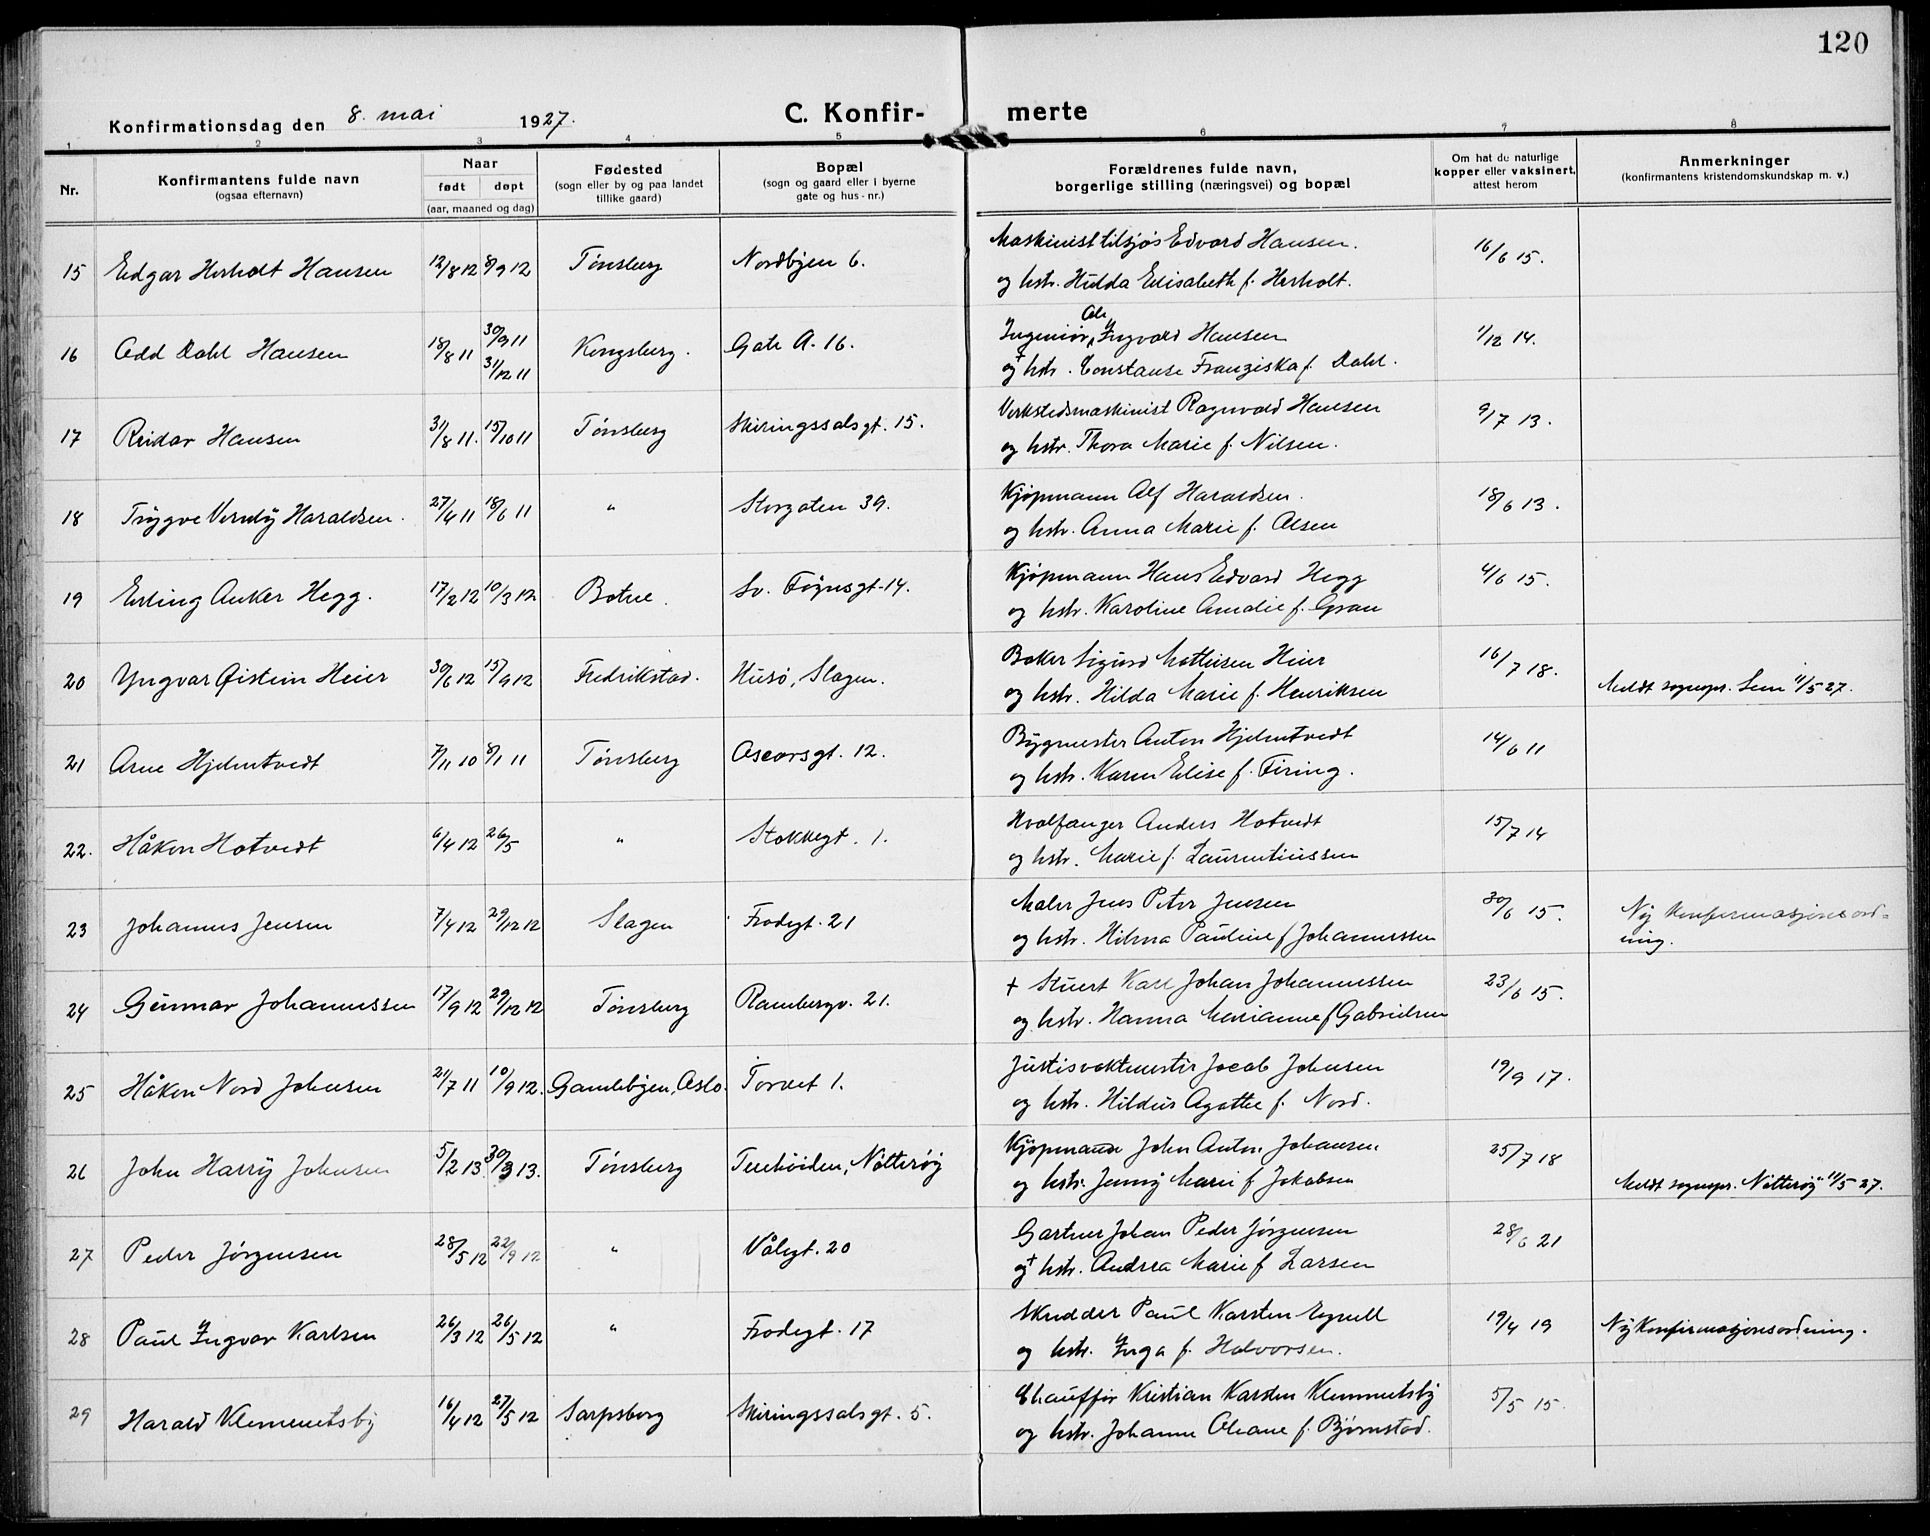 120
Konfirmationsdag den 8. mai 1927.
C. Konfir- merte
1 2 3 4 5 6 7 8
Nr.
Konfirmantens fulde navn
(ogsaa efternavn)
Naar
født døpt
(aar, maaned og dag)
Fødested
(sogn eller by og paa landet
tillike gaard)
Bopæl
(sogn og gaard eller i byerne
gate og hus-nr.)
Forældrenes fulde navn,
borgerlige stilling (næringsvei) og bopæl
Om hat du naturlige
kopper eller vaksinert,
attest herom
Anmerkninger
(konfirmantens kristendomskundskap m. v.)
15 Edgar Herholt Hansen 12/8 12 8/9 12 Tønsberg Nordbyen 6. Maskinist tilsjøs Edvard Hansen. 16/6 15.
og hstr. Hulda Elisabeth f. Herholt.
16 Odd Dahl Hansen 18/8 11 30/9 11 31/12 11 Kongsberg. Gate A. 16. Ingeniør Ole Ingvald Hansen 1/12 14.
og + hstr. Constanse Franziska f. Dahl.
17 Reidar Hansen 31/8 11. 15/10 11 Tønsberg Skiringssalsgt. 15. Verkstedsmaskinist Ragnvald Hansen 9/7 13.
og hstr. Thora Marie f. Nilsen.
18 Trygve Verndy Haraldsen. 27/4 11 18/6 11 " Storgaten 39. Kjøpmann Alf Haraldsen. 18/6 13.
og hstr. Anna Marie f. Olsen
19 Erling Anker Hegg. 17/2 12 10/3 12 Botne. Sv. Føynsgt. 14. Kjøpmann Hans Edvard Hegg 4/6 15.
og hstr. Karoline Amalie f. Gran
20 Yngvar Øistein Heier 30/6 12 15/9 12 Fredrikstad. Husö, Slagen. Baker Sigurd Mathisen Heier 16/7 18.
og hstr. Hilda Marie f. Henriksen Meldt sognepr. Sem 11/5 27.
21 Arne Hjelmtvedt 7/11 10 8/1 11 Tønsberg Oscarsgt. 12. Bygmester Anton Hjelmtvedt 14/6 11
og hstr. Karen Elise f. Firing.
22. Håkon Hotvedt 6/4 12 26/5 " Stokkegt. 1. Hvalfanger Anders Hotvedt 15/7 14
og hstr. Marie f. Laurentiussen
23 Johannes Jensen 7/4 12 29/12 12 Slagen Frodegt. 21 Maler Jens Peter Jensen 30/6 15. Ny konfirmasjonsord=
og hstr. Hilma Pauline f Johannessen ning.
24 Gunnar Johannessen 17/9 12 29/12 12 Tønsberg Rambergv. 21. + Stuert Karl Johan Johannessen 23/6 15.
og hstr. Hanna Marianne f Gabrielsen
25 Håkon Nord Johnsen 21/7 11 10/9 12. Gamlebyen, Oslo. Torvet 1. Justisvaktmester Jacob Johnsen 19/9 17.
og hstr. Hildur Agathe f. Nord.
26 John Harry Johnsen 5/2 13. 30/3 13. Tønsberg Teiehöiden, Nötteröy Kjøpmann John Anton Johansen 25/7 18
og hstr. Jenny Marie f Jakobsen Meldt sognepr. Nötteröy 11/5 27.
27 Peder Jørgensen 28/5 12 22/9 12 " Vålegt. 20 Gartner Johan Peder Jørgensen 28/6 21
og + hstr. Andrea Marie f Larsen
28 Paul Ingvar Karlsen 26/3 12 26/5 12 " Frodegt. 17 Skredder Paul Karsten 19/4 19 Ny konfirmasjonsordning.
og hstr. Inga f. Halvorsen.
29 Harald Klemmetsby 16/4 12 27/5 12 Sarpsborg Skiringssalsgt. 5. Chauffør Kristian Karsten Klemmetsby 5/5 15.
og hstr. Johanne Oleane f. Bjørnstad.